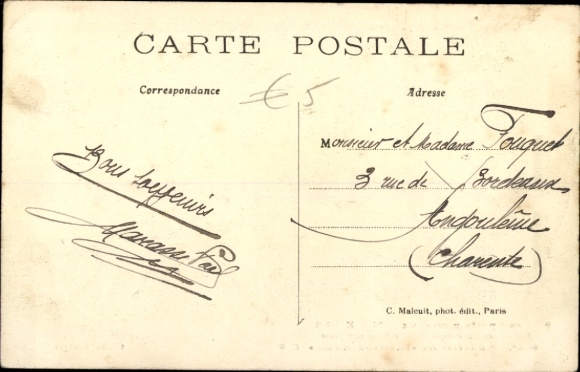 CARTE POSTALE
Correspondance
€ 5
Adresse
Bons souvenirs
Monsieur et Madame Fouquet
3 rue de Bordeaux
Angoulême
(Charente)
C. Malcuit, phot. édit., Paris